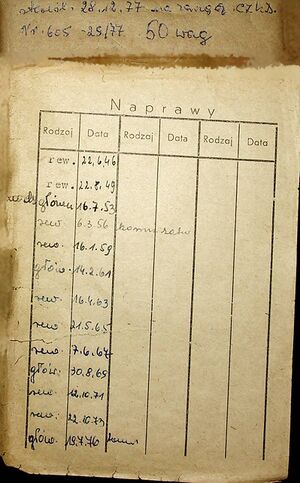 28.12.77
Nr. 605-25/77 50 wag
Naprawy
Rodzaj Data Rodzaj Data Rodzaj Data
rew. 22.6.46
rew. 22.8.49
główna 16.7.53
rew. 6.3.56
rew. 16.1.59
głów. 14.2.61
rew. 16.4.63
rew. 21.5.65
rew. 7.6.67
głów. 30.8.69
rew. 12.10.71
rew. 22.10.73
głów. 19.7.76